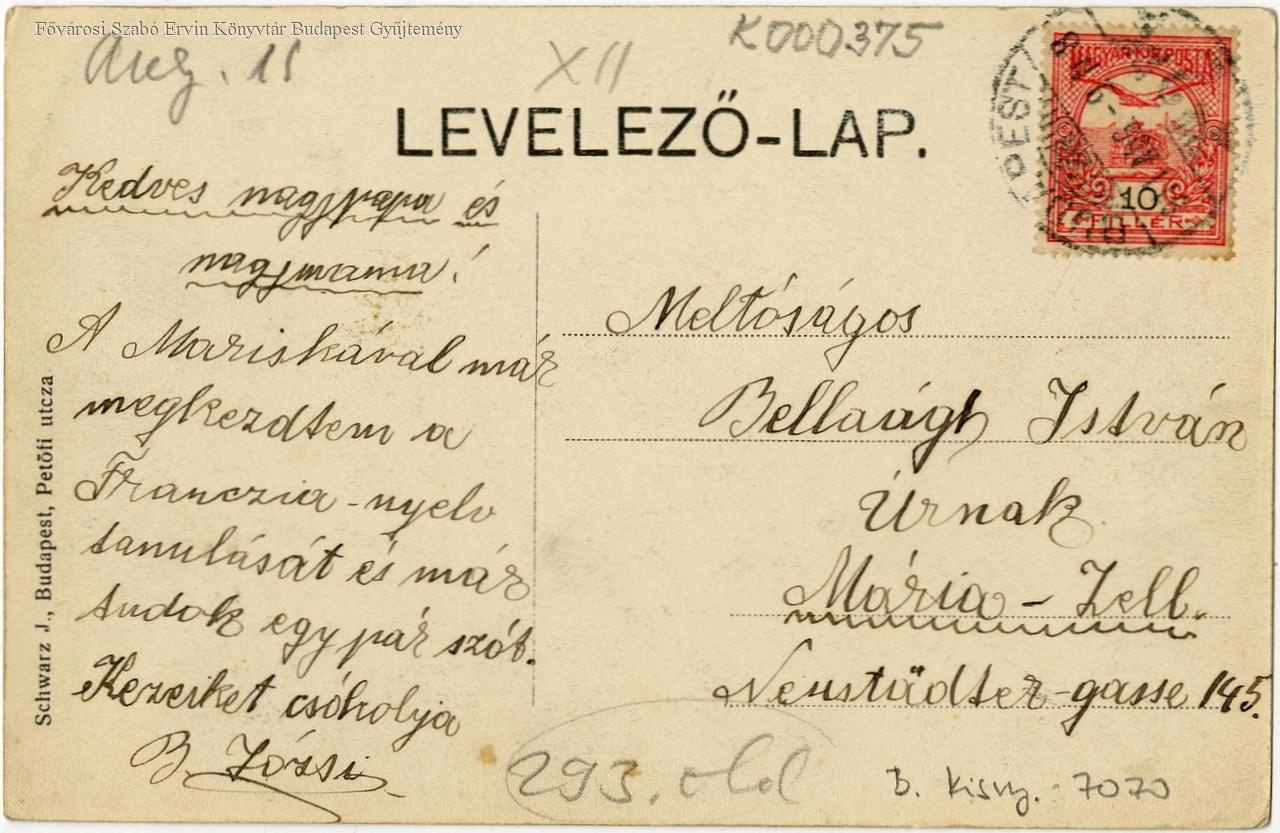 Fővárosi Szabó Ervin Könyvtár Budapest Gyűjtemény
Aug. 11
XII
K000375
LEVELEZŐ-LAP.
MAGYAR KIR. POSTA
10
FILLÉR
Kedves nagypapa és
nagymama!
A Mariskával már
megkezdtem a
Franczia-nyelv
tanulását és már
tudok egy pár szót.
Kezeiket csókolja
B. Józsi
Meltóságos
Bellaágh István
Úrnak
Mária-Zell.
Neustädter-gasse 145.
Schwarz J., Budapest, Petőfi utcza
293. old
B. Kisny. 7070